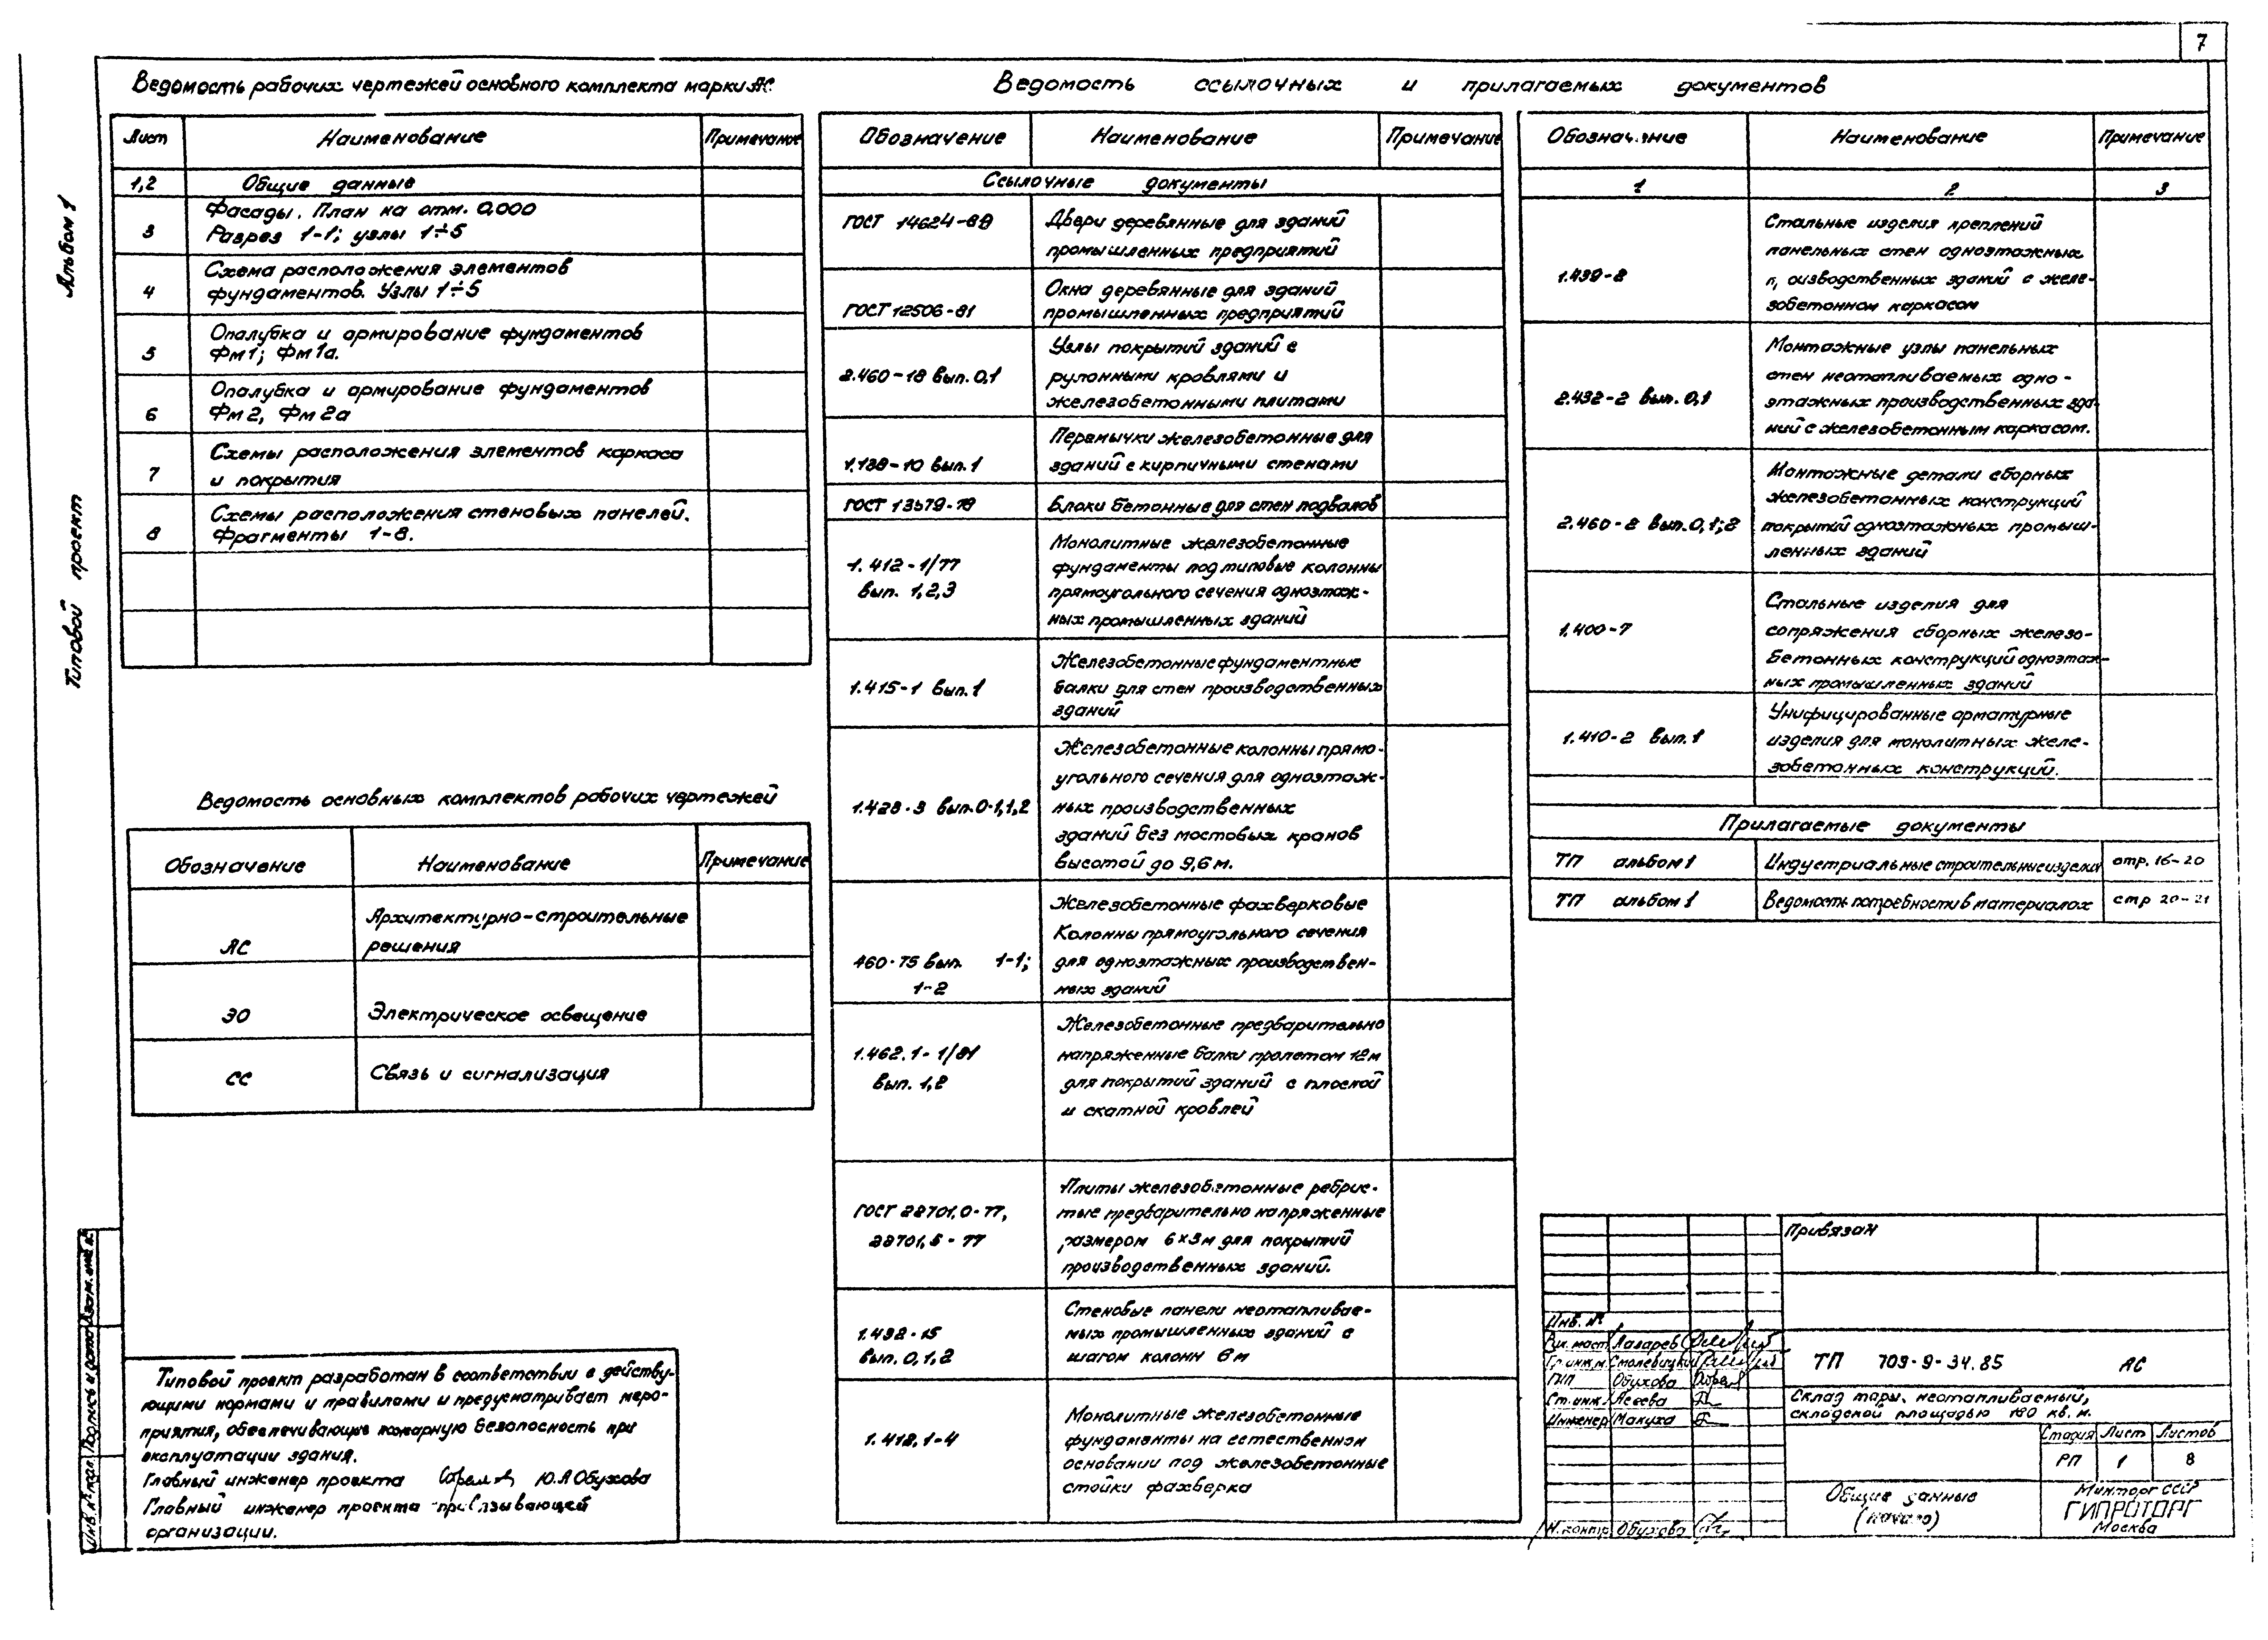 7
Альбом 1
Типовой проект
Ведомость рабочих чертежей основного комплекта марки АС
Лист Наименование Примечание
1,2 Общие данные
3 Фасады. План на отм. 0.000
Разрез 1-1; узлы 1÷5
4 Схема расположения элементов
фундаментов. Узлы 1÷5
5 Опалубка и армирование фундаментов
Фм1; Фм1а.
6 Опалубка и армирование фундаментов
Фм2, Фм2а
7 Схемы расположения элементов каркаса
и покрытия
8 Схемы расположения стеновых панелей.
Фрагменты 1-8.
Ведомость основных комплектов рабочих чертежей
Обозначение Наименование Примечание
АС Архитектурно-строительные
решения
ЭО Электрическое освещение
СС Связь и сигнализация
Типовой проект разработан в соответствии с действу-
ющими нормами и правилами и предусматривает меро-
приятия, обеспечивающие пожарную безопасность при
эксплуатации здания.
Главный инженер проекта Ю.А Обухова
Главный инженер проекта привязывающей
организации.
Ведомость ссылочных и прилагаемых документов
Обозначение Наименование Примечание
Ссылочные документы
ГОСТ Двери деревянные для зданий
промышленных предприятий
ГОСТ 12506-81 Окна деревянные для зданий
промышленных предприятий
2.460-18 вып. 0,1 Узлы покрытий зданий с
рулонными кровлями и
железобетонными плитами
1.138-10 вып. 1 Перемычки железобетонные для
зданий с кирпичными стенами
ГОСТ 13579-78 Блоки бетонные для стен подвалов
1.412-1/77
вып. 1,2,3
Монолитные железобетонные
фундаменты под типовые колонны
прямоугольного сечения одноэтаж-
ных промышленных зданий
1.415-1 вып. 1 Железобетонные фундаментные
балки для стен производственных
зданий
1.423-3 вып. 0-1,1,2 Железобетонные колонны прямо-
угольного сечения для одноэтаж-
ных производственных
зданий без мостовых кранов
высотой до 9,6 м.
460-75 вып. 1-1;
1-2
Железобетонные фахверковые
Колонны прямоугольного сечения
для одноэтажных производствен-
ных зданий
1.462.1-1/81
вып. 1,2
Железобетонные предварительно
напряженные балки пролетом 12м
для покрытий зданий с плоской
и скатной кровлей
ГОСТ 22701.0-77,
22701.5-77
Плиты железобетонные ребрис-
тые предварительно напряженные
размером 6×3м для покрытий
производственных зданий.
1.432-15
вып. 0,1,2
Стеновые панели неотапливае-
мых промышленных зданий с
шагом колонн 6м
1.412.1-4 Монолитные железобетонные
фундаменты на естественном
основании под железобетонные
стойки фахверка
Обозначение Наименование Примечание
1 2 3
1.439-2 Стальные изделия креплений
панельных стен одноэтажных
п, оизводственных зданий с желе-
зобетонном каркасом
2.432-2 вып. 0,1 Монтажные узлы панельных
стен неотапливаемых одно-
этажных производственных зда-
ний с железобетонным каркасом.
2.460-2 вып. 0,1;2 Монтажные детали сборных
железобетонных конструкций
покрытий одноэтажных промыш-
ленных зданий
1.400-7 Стальные изделия для
сопряжения сборных железо-
бетонных конструкций одноэтаж-
ных промышленных зданий
1.410-2 вып. 1 Унифицированные арматурные
изделия для монолитных желе-
зобетонных конструкций.
Прилагаемые документы
ТП альбом 1 Индустриальные строительные изделия стр. 16-20
ТП альбом 1 Ведомость потребности в материалах стр 20-21
Привязан
Инв. №
Рук. маст. Лазарев
Гл. инж. м. Смолевицкий
ГИП Обухова
Ст. инж. Асеева
Инженер Макуха
Н. контр. Обухова
ТП 709-9-34.85 АС
Склад тары, неотапливаемый,
складской площадью 180 кв. м.
Стадия Лист Листов
РП 1 8
Общие данные
(начало)
Минторг СССР
ГИПРОТОРГ
Москва
Инв. № подл. Подпись и дата Взам. инв. №